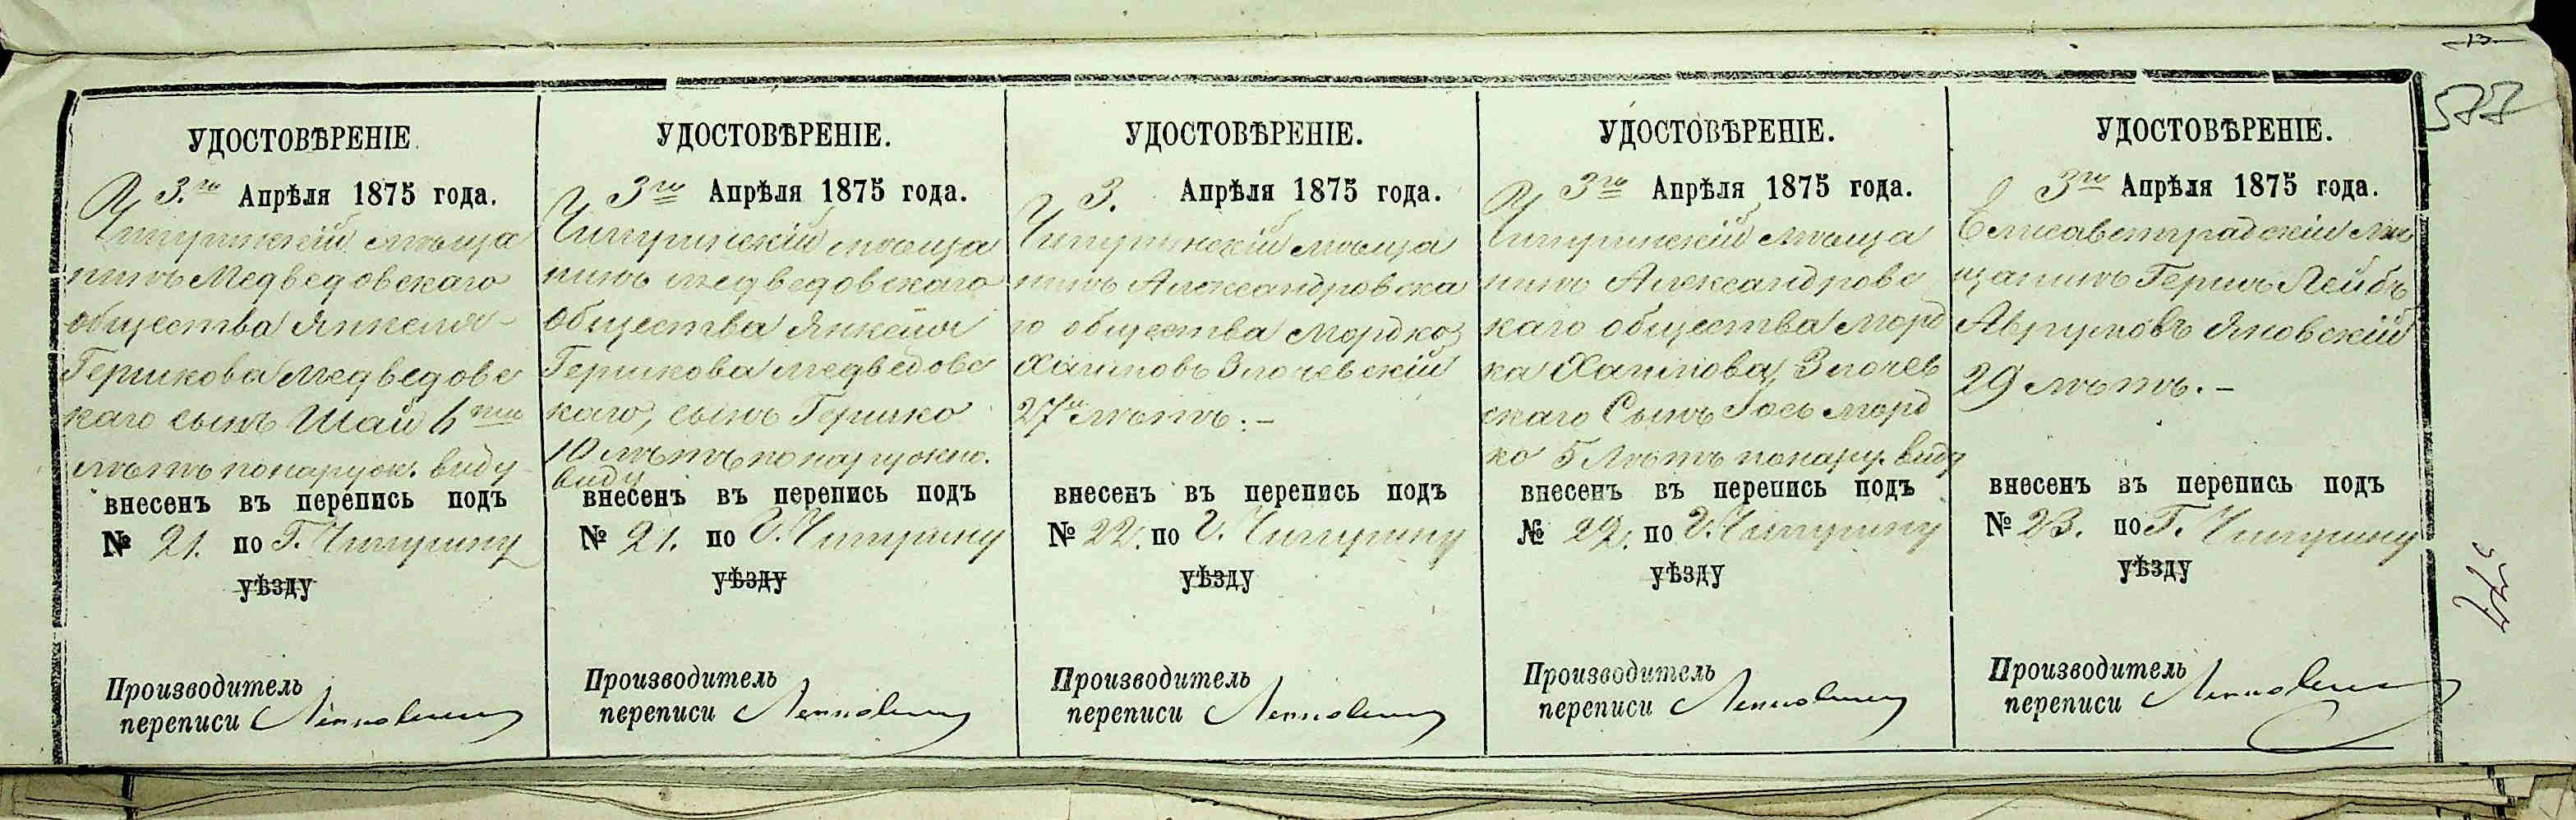 13
577
УДОСТОВѢРЕНІЕ.
3.го Апрѣля 1875 года.
Чигиринскій мѣща
нинъ Медведовскаго
общества Янкеля
Гершкова Медведовс
каго сынъ Шай 6ти
лѣтъ понаруж. виду
внесенъ въ перепись подъ
№ 21. по Г. Чигирину
уѣзду
Производитель
переписи
УДОСТОВѢРЕНІЕ.
3го Апрѣля 1875 года.
Чигиринскій мѣща
нинъ медведовскаго
общества Янкеля
Гершкова медведовс
каго, сынъ Гершко
10 лѣтъ по наружно.
виду
внесенъ въ перепись подъ
№ 21. по Г. Чигирину
уѣзду
Производитель
переписи
УДОСТОВѢРЕНІЕ.
3. Апрѣля 1875 года.
Чигиринскій мѣща
нинъ Александровска
го общества Мордко
Хаимовъ Злочевскій
27и лѣтъ.-
внесенъ въ перепись подъ
№ 22. по Г. Чигирину
уѣзду
Производитель
переписи
УДОСТОВѢРЕНІЕ.
3го Апрѣля 1875 года.
Чигиринскій мѣща
нинъ Александровс
каго общества Морд
ка Хаимова Злочев
скаго Сынъ Гось морд
ко 5 лѣтъ понару. виду
внесенъ въ перепись подъ
№ 22. по Г. Чигирину
уѣзду
Производитель
переписи
УДОСТОВѢРЕНІЕ.
3го Апрѣля 1875 года.
Елисаветградскій мѣ
щанинъ Гершъ Лейбъ
Аврумовъ Яновскій
29 лѣтъ.-
внесенъ въ перепись подъ
№ 23. по Г. Чигирину
уѣзду
Производитель
переписи